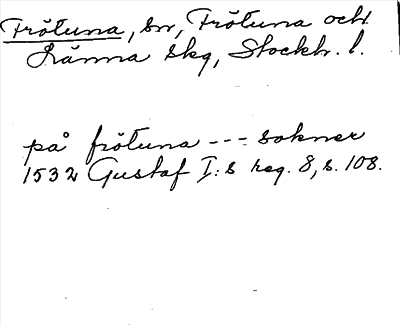 Frötuna, sn, Frötuna och
Länna skg, Stockh. l.
på frötuna --- sokner
1532 Gustaf I:s reg. 8, s. 108.